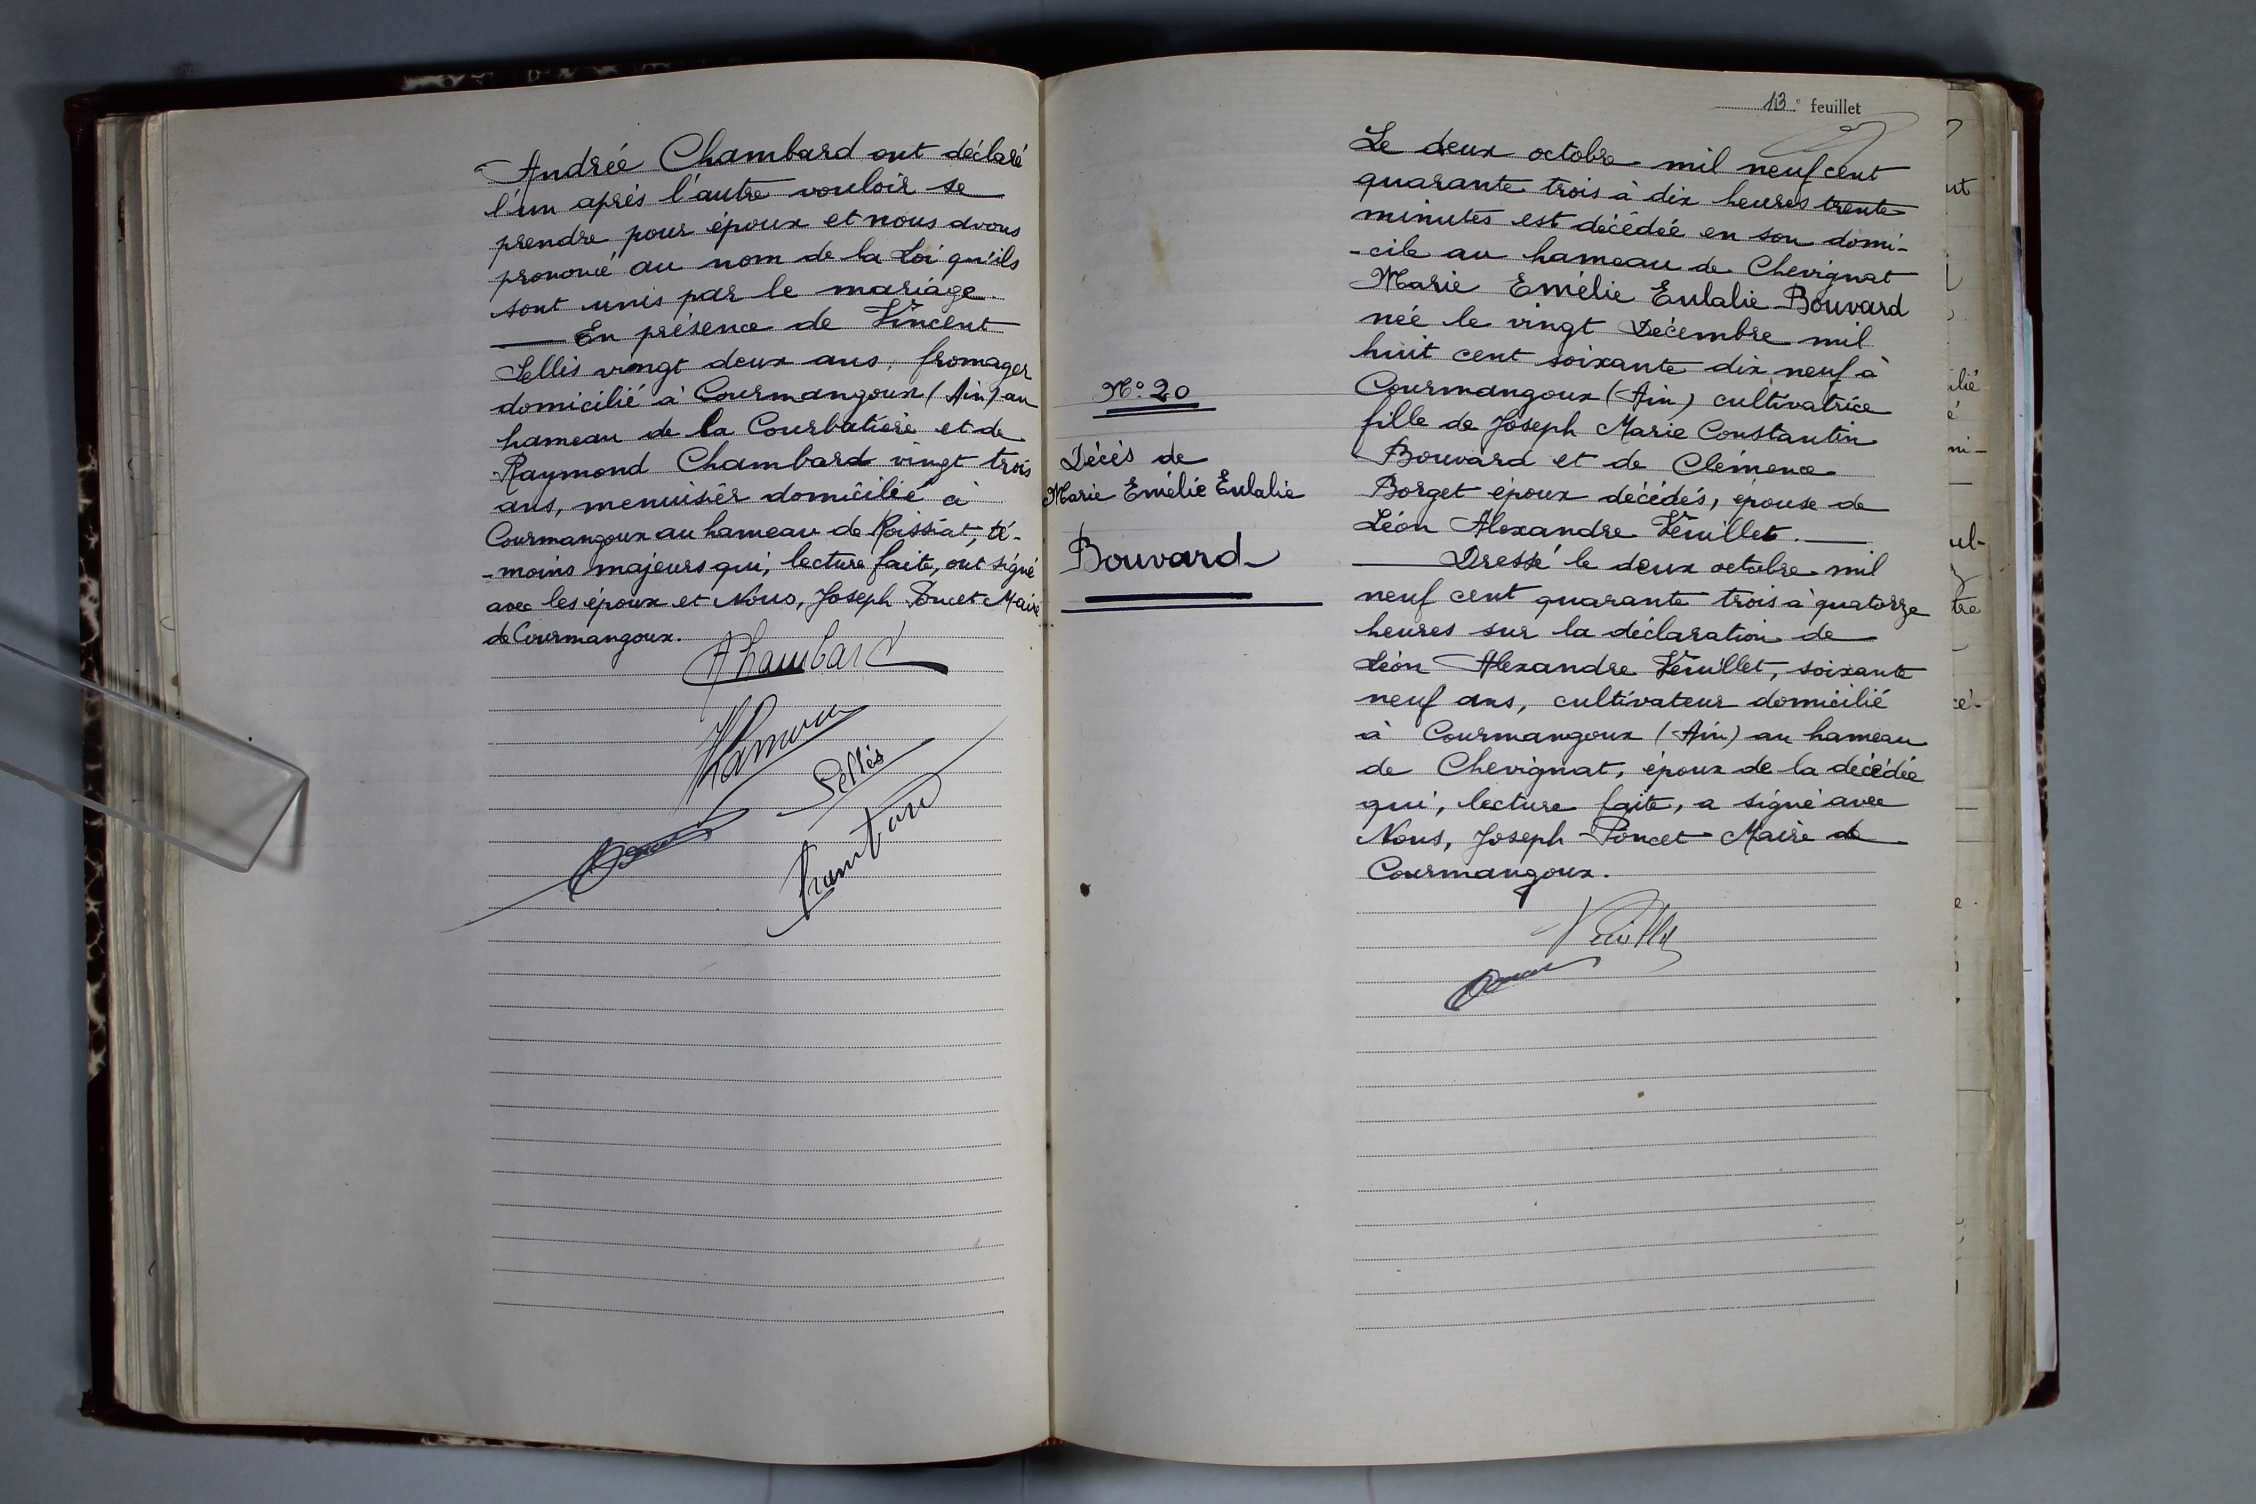 Andrée Chambard ont déclaré
l'un après l'autre vouloir se
prendre pour époux et nous avons
prononcé au nom de la Loi qu'ils
sont unis par le mariage.
En présence de Vincent
Sellès vingt deux ans, fromager
domicilié à Courmangoux (Ain) au
hameau de la Courbatière et de
Raymond Chambard vingt trois
ans, menuisier domicilié à
Courmangoux au hameau de Roissiat, té-
-moins majeurs qui, lecture faite, ont signé
avec les époux et Nous, Joseph Poncet Maire
de Courmangoux.
AChambard
Sellès
Chambard
13e feuillet
N° 20
Décès de
Marie Emélie Eulalie
Bouvard
Le deux octobre mil neuf cent
quarante trois à dix heures trente
minutes est décédée en son domi-
-cile au hameau de Chevignat
Marie Emélie Eulalie Bouvard
née le vingt Décembre mil
huit cent soixante dix neuf à
Courmangoux (Ain) cultivatrice
fille de Joseph Marie Constantin
Bouvard et de Clémence
Borget époux décédés, épouse de
Léon Alexandre Veuillet.
Dressé le deux octobre mil
neuf cent quarante trois à quatorze
heures sur la déclaration de
Léon Alexandre Veuillet, soixante
neuf ans, cultivateur domicilié
à Courmangoux (Ain) au hameau
de Chevignat, époux de la décédée
qui, lecture faite, a signé avec
Nous, Joseph Poncet Maire de
Courmangoux.
Veuillet